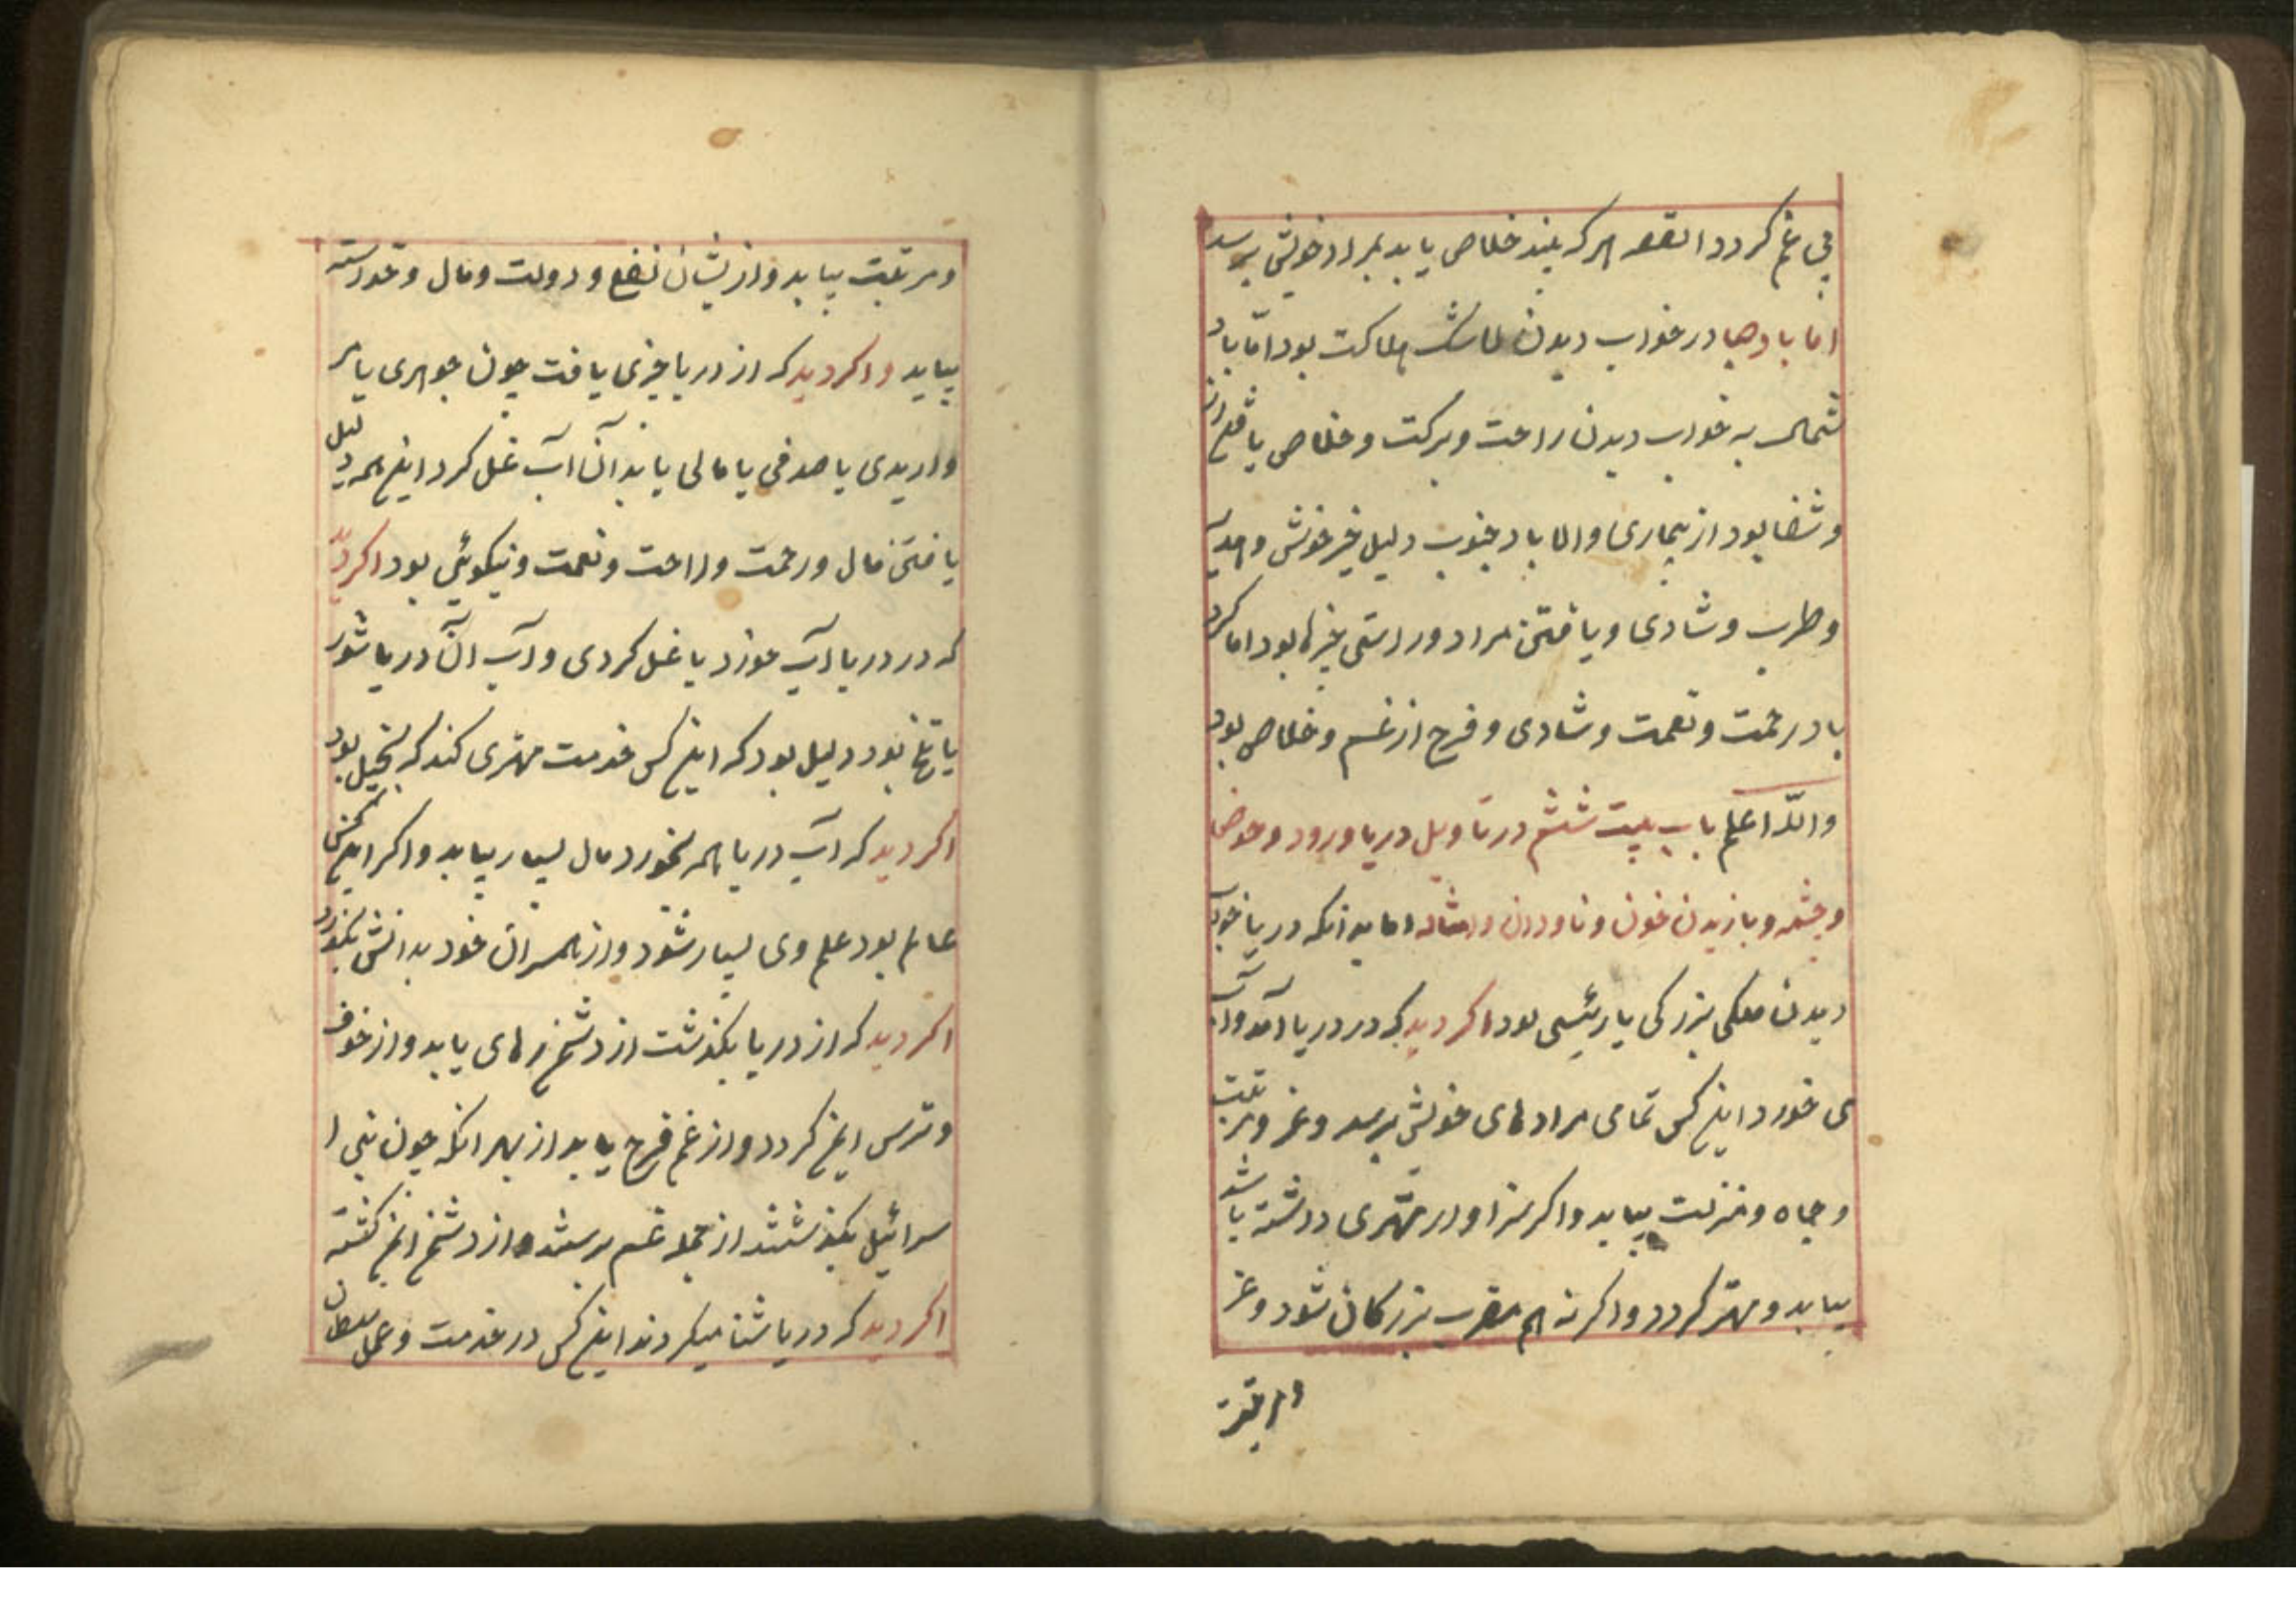 بی غم گردد القصه هر که بیند خلاص یابد بمراد خویش برسد
اما بادها در خواب دیدن هلاکت بود اما باد
شمال به خواب دیدن راحت و برکت و خلاص یافتن از
و شفا بود از بیماری والا باد جنوب دلیل خیر خوش و
و طرب و شادی و یافتن مراد و راستی بود اما گرد
باد رحمت و نعمت و شادی و فرح از غم و خلاص بود
والله اعلم باب بیست ششم در تاویل دریا و رود و حوض
و چشمه و بازیدن خون و ناودان و امثاله اما بدانکه دریا خواب
دیدن ملکی بزرگی یا رئیسی بود اگر دید که در دریا آمد و آب
می خورد اینکس تمامی مرادهای خویش برسد و عز و مرتبت
و جاه و منزلت بیابد و اگر سزاوار مهتری داشته باشد
بیابد و مهتر گردد و اگر نه هم مقرب بزرگان شود و عز
و مرتبت
و مرتبت بیابد و از نشان نفع و دولت و مال و خواسته
بیابد و اگر دید که از دریا چیزی یافت چون جوهری یا مر
واریدی یا صدفی یا مالی یا بدآن آب غسل کرد اینهمه دلیل
یافتن مال و رحمت و راحت و نعمت و نیکوئی بود اگر دید
که در دریا آب خورد یا غسل کردی و آب آن دریا شور
یا تلخ بود دلیل بود که اینکس خدمت مهتری کند که بخیل بود
اگر دید که آب دریا همه بخورد مال بسیار بیابد و اگر اینکس
عالم بود علم وی بسیار شود و از همسران خود بدانش بگذرد
اگر دید که از دریا بگذشت از دشمن رهای یابد و از خوف
و ترس ایمن گردد و از غم فرح یابد از بهر انکه چون بنی ا
سرائیل بگذشتند از جمله غم برستند و از دشمن ایمن گشتند
اگر دید که در دریا شنا میکردند اینکس در خدمت و عمل سلطان